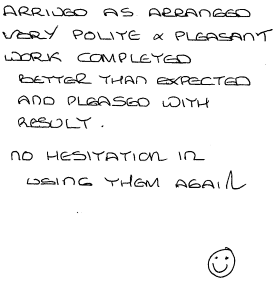 ARRIVED AS ARRANGED
VERY POLITE & PLEASANT
WORK COMPLETED
BETTER THAN EXPECTED
AND PLEASED WITH
RESULT.
NO HESITATION IN
USING THEM AGAIN